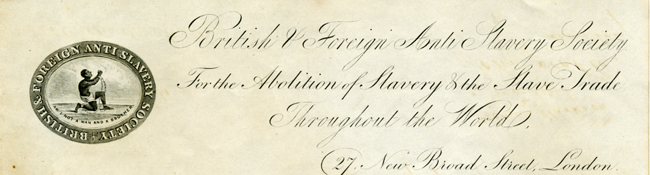 BRITISH & FOREIGN ANTI SLAVERY SOCIETY
AM I NOT A MAN AND A BROTHER
British & Foreign Anti Slavery Society
For the Abolition of Slavery & the Slave Trade
Throughout the World.
27, New Broad Street, London.